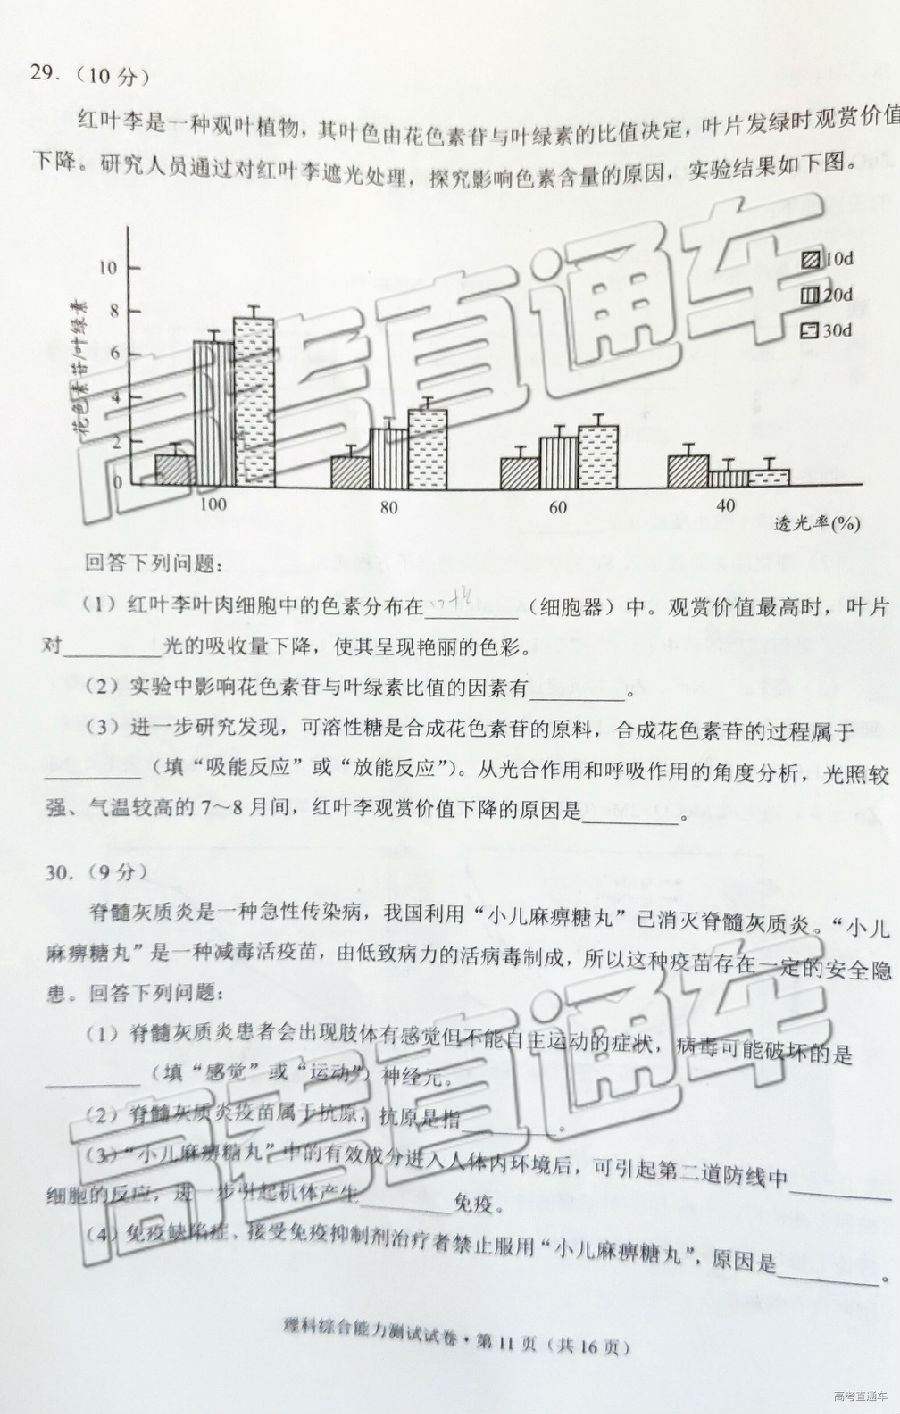 29.（10分）
红叶李是一种观叶植物，其叶色由花色素苷与叶绿素的比值决定，叶片发绿时观赏价值
下降。研究人员通过对红叶李遮光处理，探究影响色素含量的原因，实验结果如下图。
花色素苷/叶绿素
10
8
6
4
2
0
100
80
60
40
透光率(%)
10d
20d
30d
回答下列问题：
（1）红叶李叶肉细胞中的色素分布在________（细胞器）中。观赏价值最高时，叶片
对________光的吸收量下降，使其呈现艳丽的色彩。
（2）实验中影响花色素苷与叶绿素比值的因素有________。
（3）进一步研究发现，可溶性糖是合成花色素苷的原料，合成花色素苷的过程属于
________（填“吸能反应”或“放能反应”）。从光合作用和呼吸作用的角度分析，光照较
强、气温较高的7～8月间，红叶李观赏价值下降的原因是________。
30.（9分）
脊髓灰质炎是一种急性传染病，我国利用“小儿麻痹糖丸”已消灭脊髓灰质炎。“小儿
麻痹糖丸”是一种减毒活疫苗，由低致病力的活病毒制成，所以这种疫苗存在一定的安全隐
患。回答下列问题：
（1）脊髓灰质炎患者会出现肢体有感觉但不能自主运动的症状，病毒可能破坏的是
________（填“感觉”或“运动”）神经元。
（2）脊髓灰质炎疫苗属于抗原，抗原是指________。
（3）“小儿麻痹糖丸”中的有效成分进入人体内环境后，可引起第二道防线中________
细胞的反应，进一步引起机体产生________免疫。
（4）免疫缺陷症、接受免疫抑制剂治疗者禁止服用“小儿麻痹糖丸”，原因是________。
理科综合能力测试试卷·第11页（共16页）
高考直通车
高考直通车
高考直通车